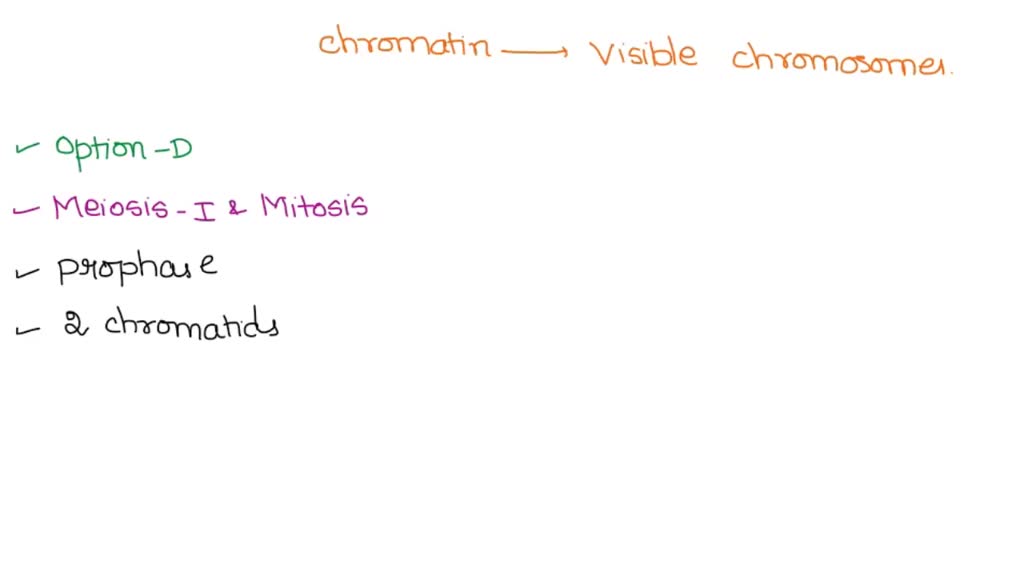 chromatin → Visible chromosomes.
✓ Option-D
✓ Meiosis-I & Mitosis
✓ prophase
✓ 2 chromatids